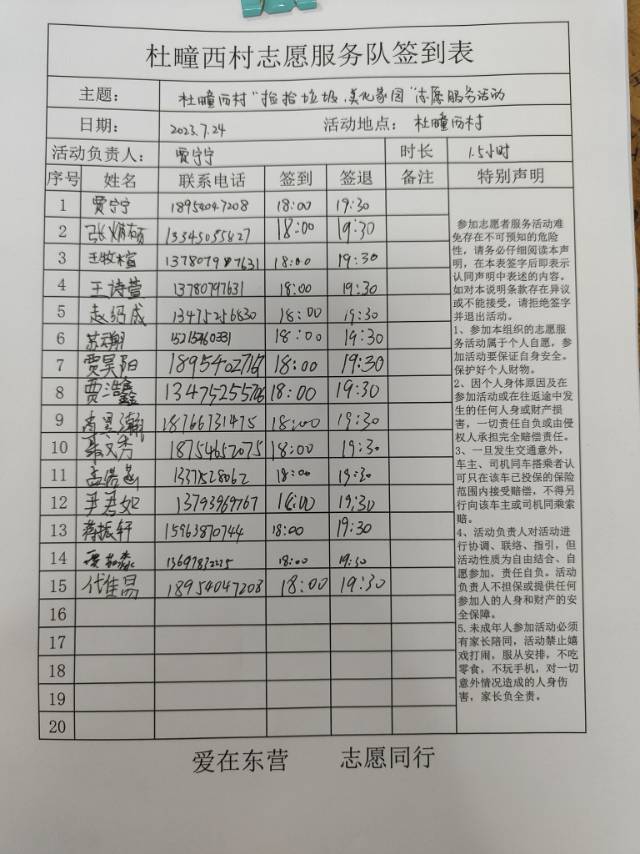 杜疃西村志愿服务队签到表
主题： 杜疃西村“捡拾垃圾，美化家园”志愿服务活动
日期： 2023.7.24 活动地点： 杜疃西村
活动负责人： 贾宁宁 时长 1.5小时
序号 姓名 联系电话 签到 签退 备注 特别声明
1 贾宁宁 18954047208 18:00 19:30
2 13345055827 18:00 19:30
3 13780797631 18:00 19:30
4 王诗萱 13780797631 18:00 19:30
5 赵绍成 13475256830 18:00 19:30
6 15215460331 18:00 19:30
7 贾昊阳 18954027167 18:00 19:30
8 贾浩鑫 13475255576 18:00 19:30
9 18766731475 18:00 19:30
10 18754652075 18:00 19:30
11 孟浩 13371528062 18:00 19:30
12 尹若妃 13793969767 18:00 19:30
13 蒋振轩 15963870744 18:00 19:30
14 18:00 19:30
15 代佳易 18954047208 18:00 19:30
16
17
18
19
20
参加志愿者服务活动难
免存在不可预知的危险
性，请务必仔细阅读本声
明，在本表签字后即表示
认同声明中表述的内容。
如对本说明条款存在异议
或不能接受，请拒绝签字
并退出活动。
1、参加本组织的志愿服
务活动属于个人自愿，参
加活动要保证自身安全。
保护好个人财物。
2、因个人身体原因及在
参加活动或在往返途中发
生的任何人身或财产损
害，一切责任自负或由侵
权人承担完全赔偿责任。
3、一旦发生交通意外，
车主、司机同车搭乘者认
可只在该车已投保的保险
范围内接受赔偿，不得另
行向该车主或司机同乘索
赔。
4、活动负责人对活动进
行协调、联络、指引，但
活动性质为自由结合、自
愿参加，责任自负。活动
负责人不担保或提供任何
参加人的人身和财产的安
全保障。
5.未成年人参加活动必须
有家长陪同，活动禁止嬉
戏打闹，服从安排，不吃
零食，不玩手机，对一切
意外情况造成的人身伤
害，家长负全责。
爱在东营 志愿同行